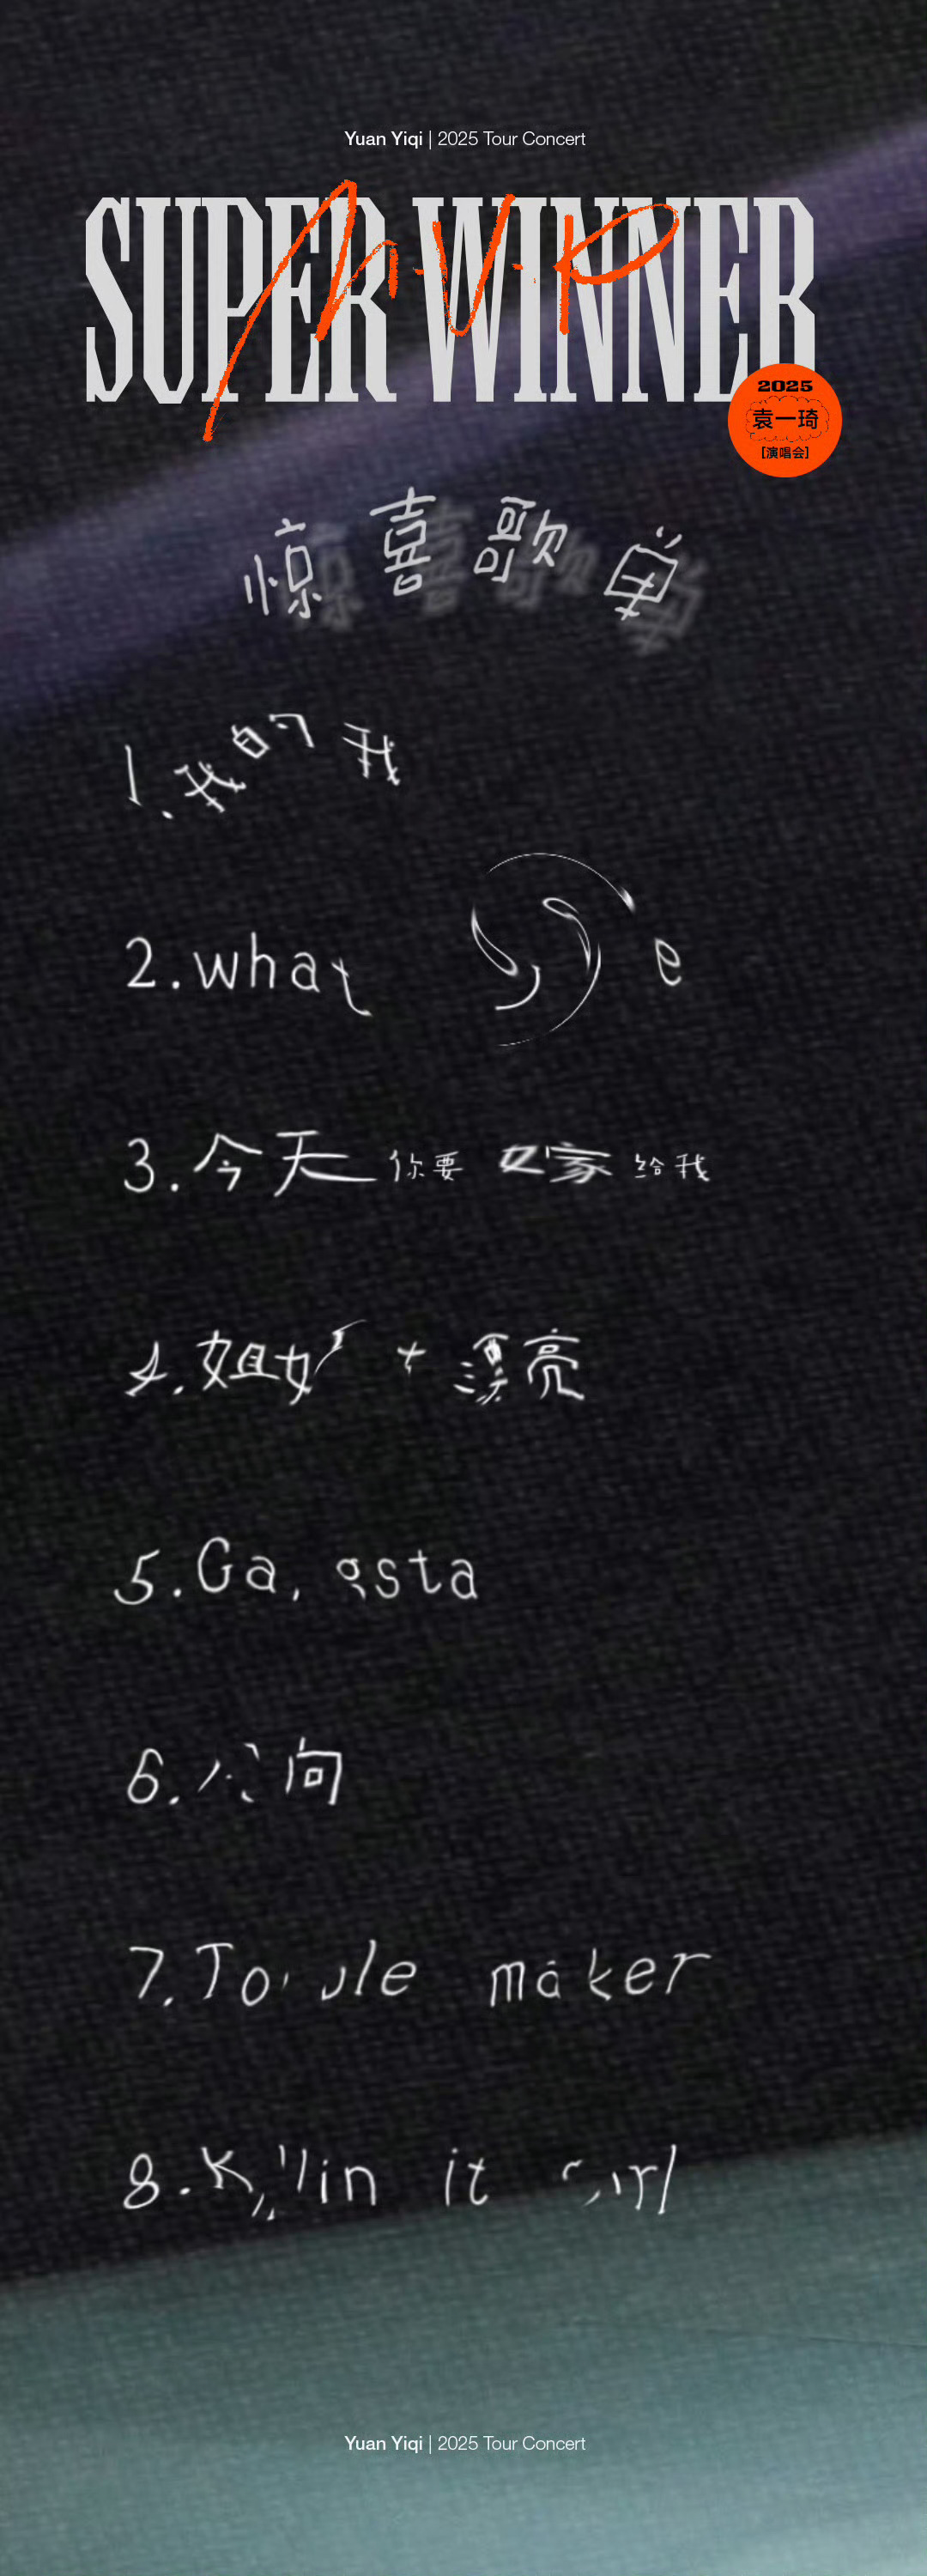 Yuan Yiqi | 2025 Tour Concert
SUPER WINNER
M·V·P
2025
袁一琦
[演唱会]
惊喜歌单
1.我的我
2.what
3.今天你要嫁给我
4.姐 漂亮
5.
6. 向
7. maker
8. it
Yuan Yiqi | 2025 Tour Concert